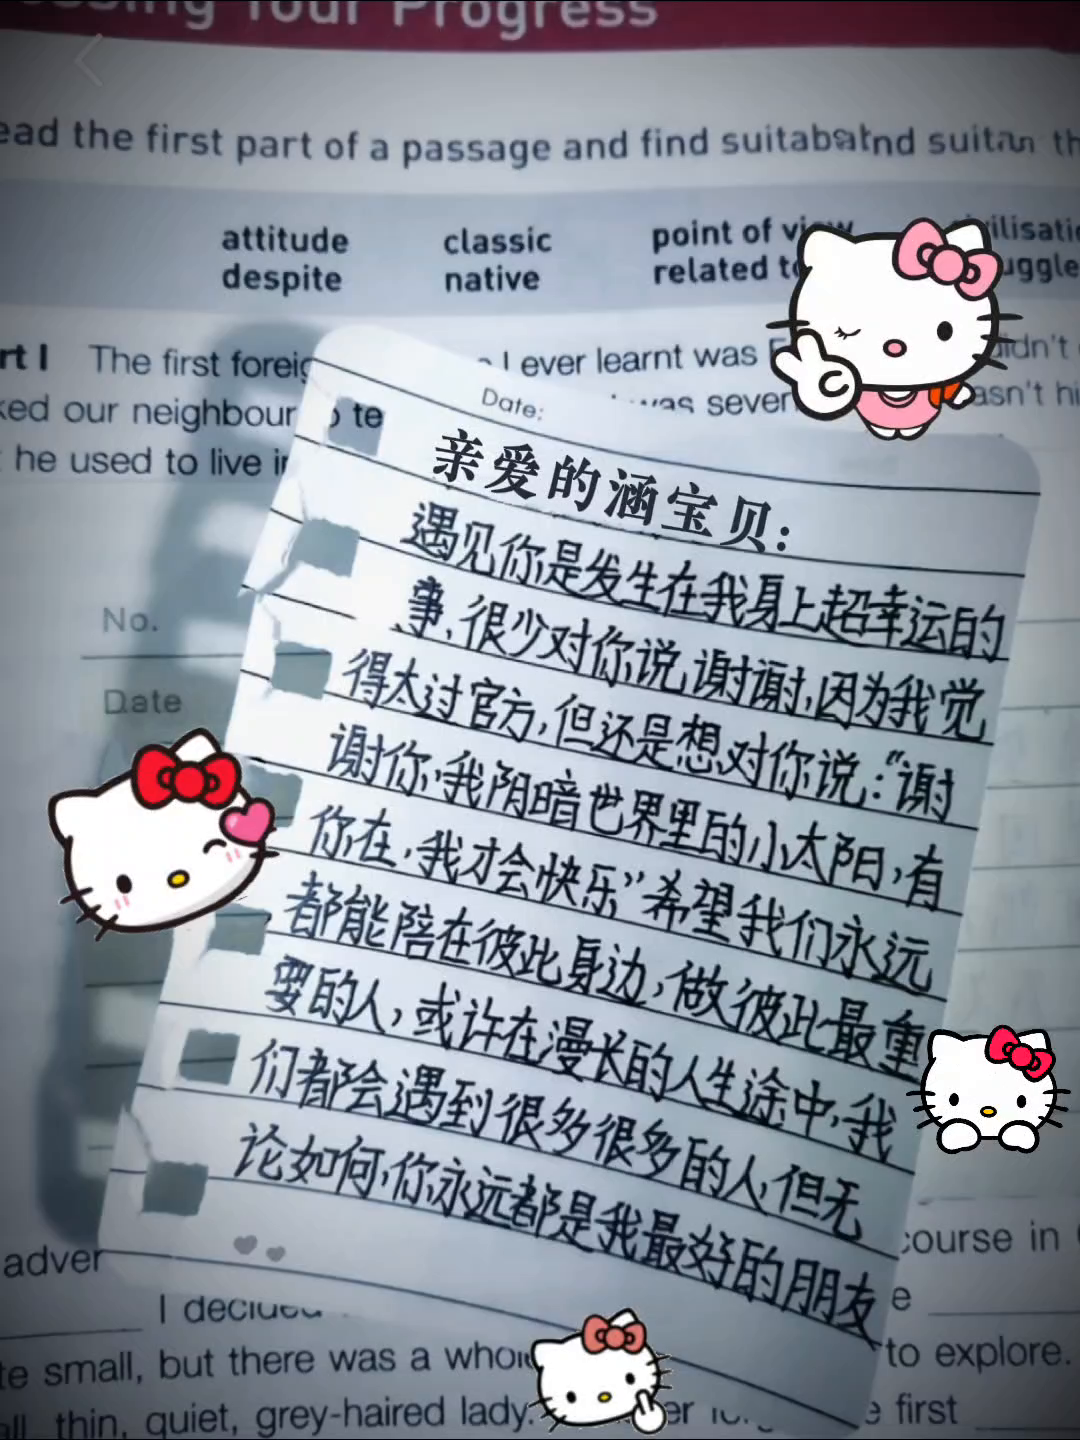 Your Progress
ead the first part of a passage and find
attitude classic point of view
despite native related to
rt I The first I ever learnt was
ked our neighbour to te was seven
he used to live in
Date:
亲爱的涵宝贝:
遇见你是发生在我身上超幸运的
事,很少对你说谢谢,因为我觉
得太过官方,但还是想对你说:“谢
谢你,我阴暗世界里的小太阳,有
你在,我才会快乐”希望我们永远
都能陪在彼此身边,做彼此最重
要的人,或许在漫长的人生途中,我
们都会遇到很多很多的人,但无
论如何,你永远都是我最好的朋友
No.
Date
adver course in
I decided e
te small, but there was a whole to explore.
all, thin, quiet, grey-haired lady. e first